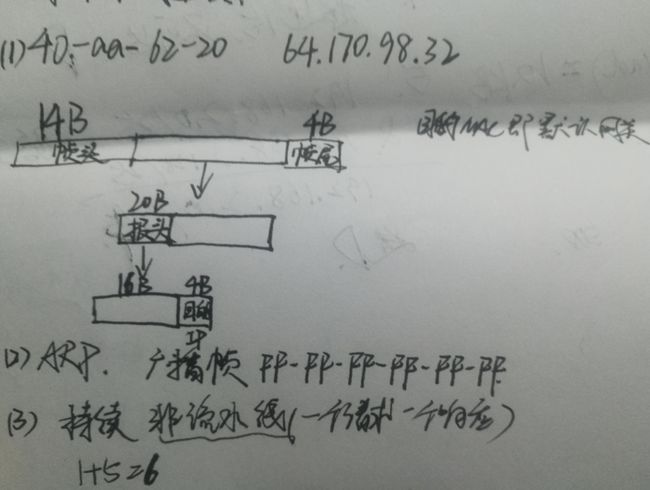 (1) 40-aa-62-20 64.170.98.32
14B 4B 目的MAC即默认网关
帧头 帧尾
20B
报头
16B 4B
目的
IP
(2) ARP. 广播帧 FF-FF-FF-FF-FF-FF
(3) 持续 非流水线(一个请求一个响应)
1+5=6